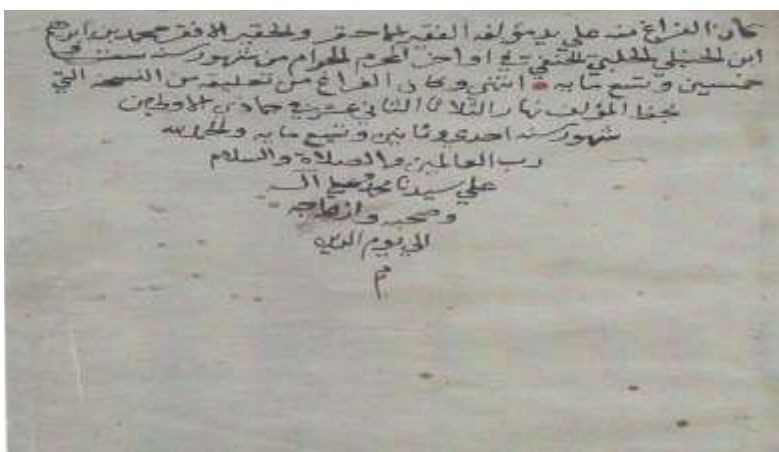 كان الفراغ منه علي يد مؤلفه الفقير والحقير الافقر محمد بن ابرهيم
ابن الحنبلي الحلبي الحنفي في اواخر المحرم الحرام من شهور سنة
خمسين وتسع مايه انتهى وكان الفراغ من تعليقه من النسخة التي
بخط المؤلف نهار الثلاثا الثاني عشر جمادى الاولى من
شهور سنه احدى وثمانين وتسع مايه والحمد لله
رب العالمين والصلاة والسلام
علي سيدنا محمد وعلي اله
وصحبه وازواجه
الي يوم الدين
م